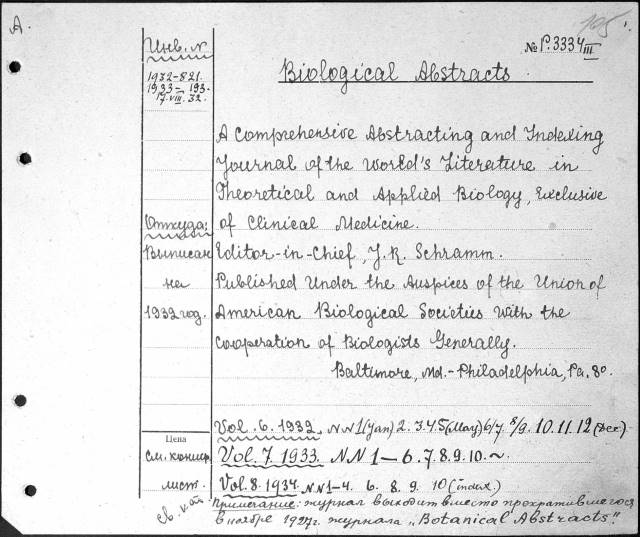 A.
105
Инв. N
№ P.3334 III
Biological Abstracts
1932-821.
1933- 193.
17.VIII.32.
A Comprehensive Abstracting and Indexing
Journal of the World's Literature in
Theoretical and Applied Biology, Exclusive
of Clinical Medicine.
Откуда:
Выписан
на
1932 год.
Editor-in-Chief, J.R. Schramm.
Published Under the Auspices of the Union of
American Biological Societies with the
Cooperation of Biologists Generally.
Baltimore, Md.-Philadelphia, Pa. 8°.
Vol. 6. 1932. NN 1(Jan) 2. 3.4.5(May) 6/7 8/9. 10. 11. 12 (Dec)
Цена
Vol. 7. 1933. NN 1-6. 7. 8. 9. 10. ~
лист.
Vol. 8. 1934. NN 1-4. 6. 8. 9. 10 (index)
Примечание: журнал выходит вместо прекратившегося
в ноябре 1927г. журнала „Botanical Abstracts".